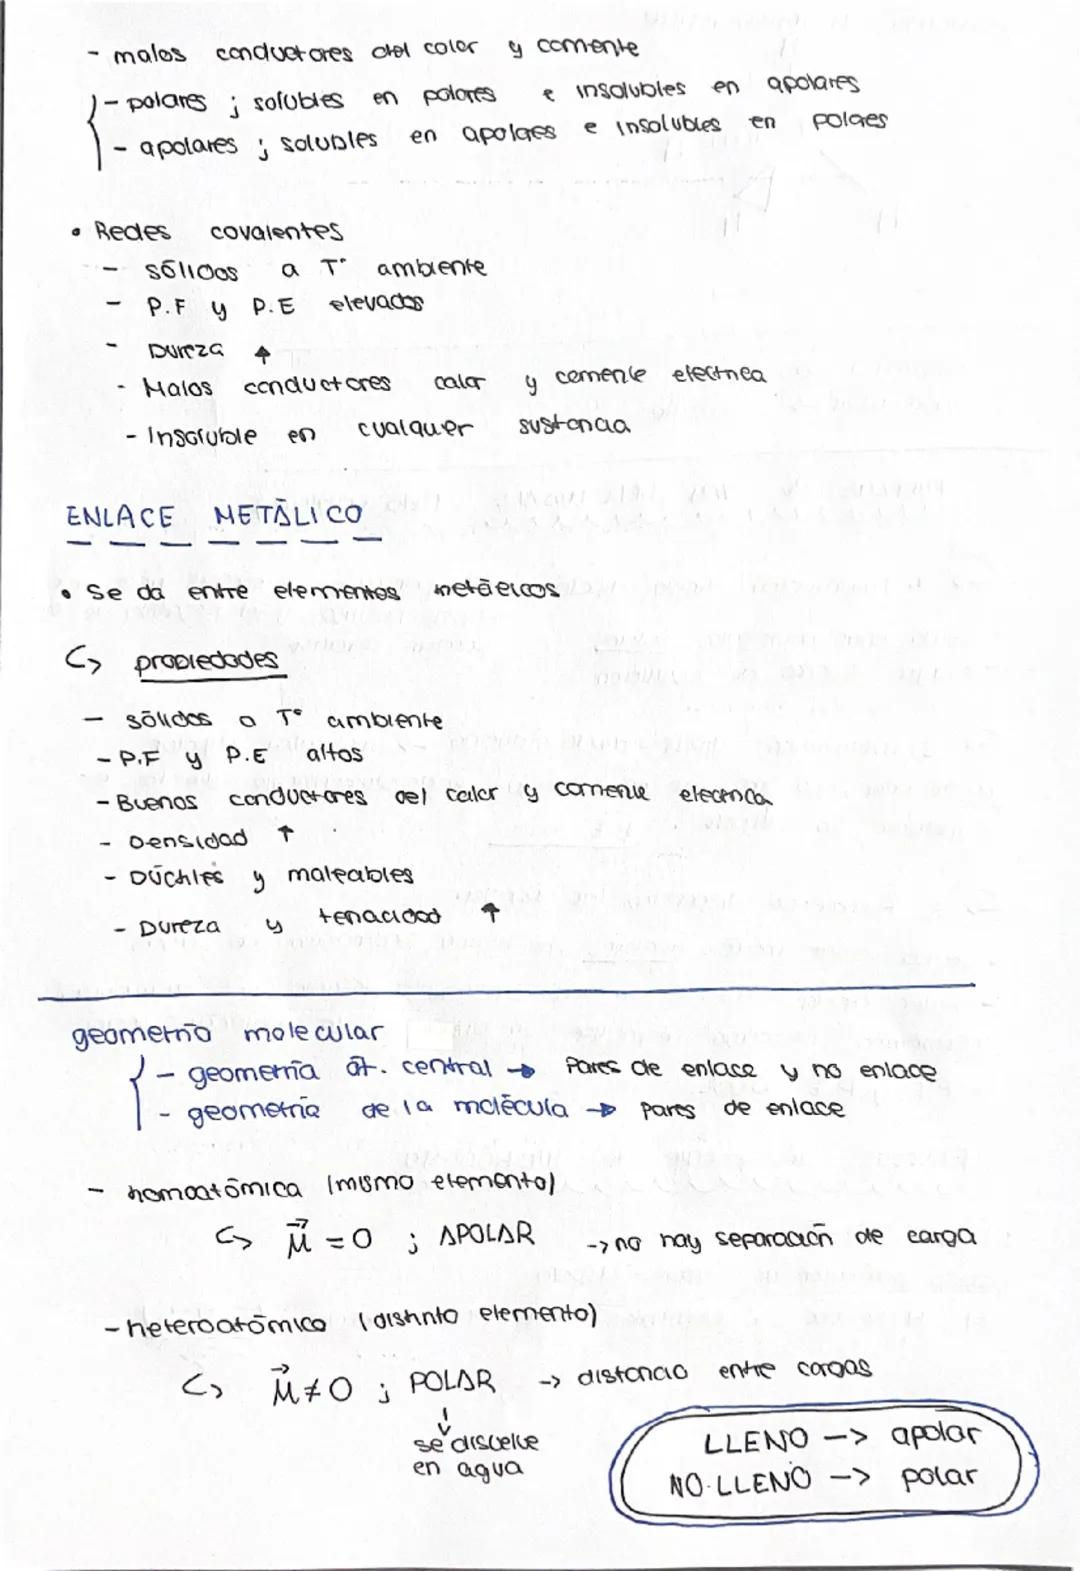 - malos conductores del calor y corriente
- polares ; solubles en polares e insolubles en apolares
- apolares ; solubles en apolares e insolubles en polares
• Redes covalentes
- sólidos a Tº ambiente
- P.F y P.E elevados
- Dureza ↑
- Malos conductores calor y corriente eléctrica
- Insoluble en cualquier sustancia
ENLACE METÁLICO
• Se da entre elementos metálicos
↳ propiedades
- sólidos a Tº ambiente
- P.F y P.E altos
- Buenos conductores del calor y corriente eléctrica
- Densidad ↑
- Dúctiles y maleables
- Dureza y tenacidad ↑
geometría molecular
- geometría át. central → Pares de enlace y no enlace
- geometría de la molécula → pares de enlace
- homoatómica (mismo elemento)
↳ μ⃗ = 0 ; APOLAR -> no hay separación de carga
- heteroatómico (distinto elemento)
↳ μ⃗ ≠ 0 ; POLAR -> distancia entre cargas
se disuelve
en agua
LLENO -> apolar
NO LLENO -> polar